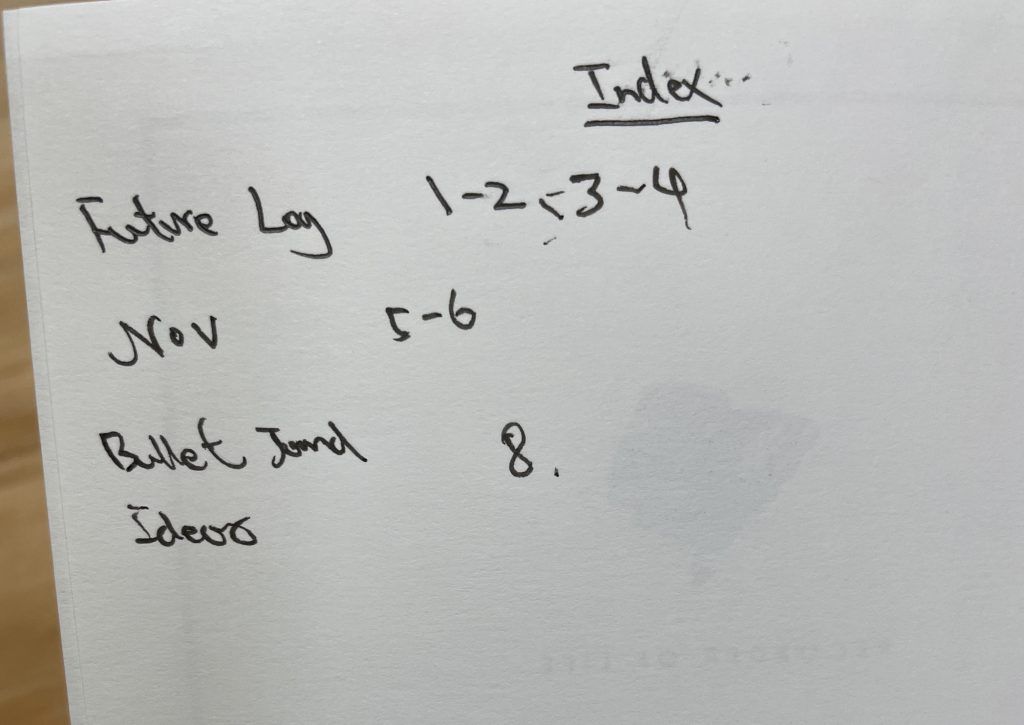 Index
Future Log 1-2, 3-4
Nov 5-6
Bullet Journal 8.
Ideas